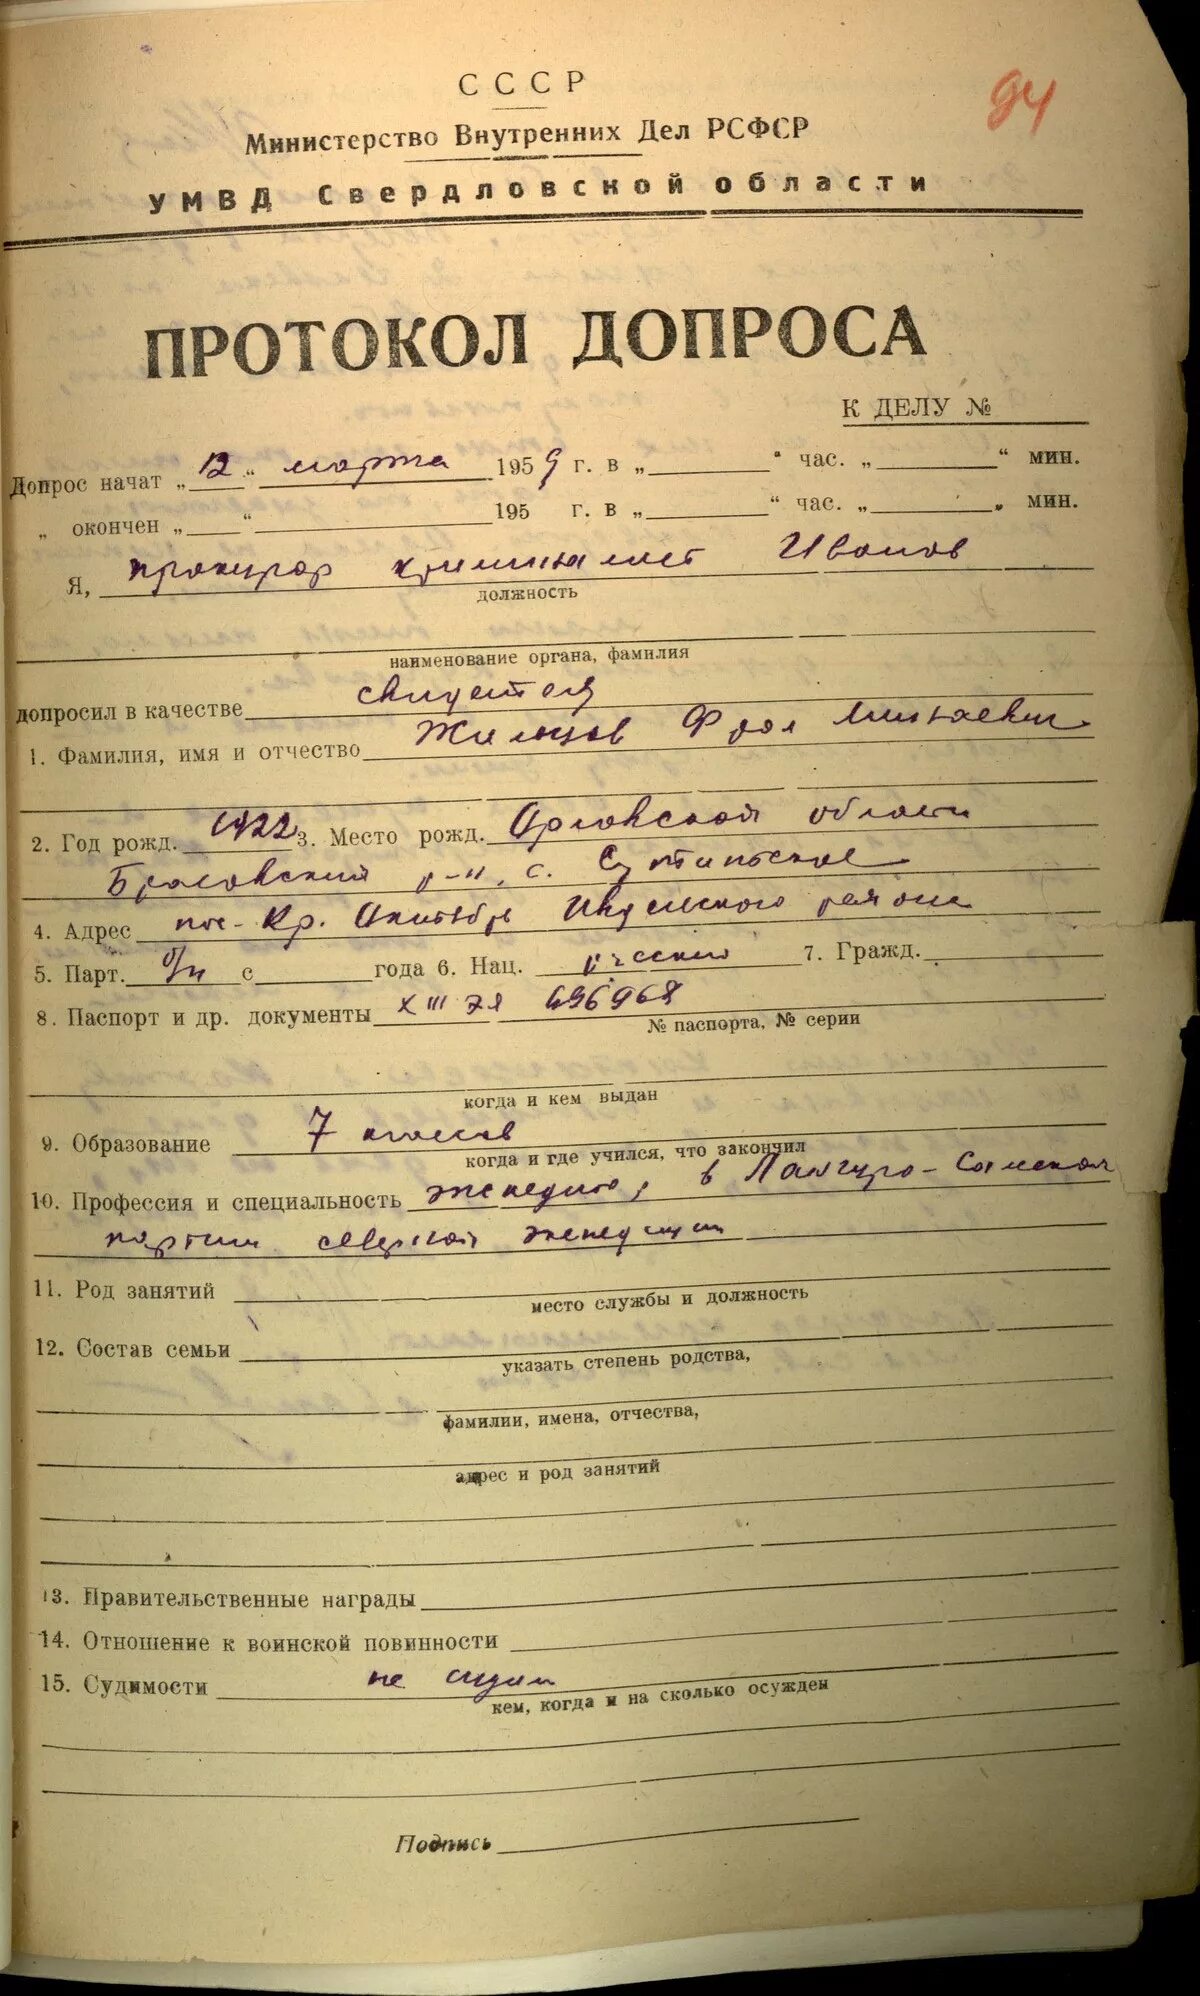 94
СССР
Министерство Внутренних Дел РСФСР
УМВД Свердловской области
ПРОТОКОЛ ДОПРОСА
К ДЕЛУ №
Допрос начат „12“ марта 1959 г. в „ “ час. „ “ мин.
„ окончен „ “ 195 г. в „ “ час. „ „ мин.
Я, прокурор криминалист Иванов
должность
наименование органа, фамилия
допросил в качестве свидетеля
1. Фамилия, имя и отчество Жильцов Фрол
2. Год рожд. 1922 3. Место рожд. Орловской области
Брасовский р-н, с.
4. Адрес пос. Кр. Октябрь Ивдельского района
5. Парт. б/п с года 6. Нац. русский 7. Гражд.
8. Паспорт и др. документы XIII ЭЯ 696968
№ паспорта, № серии
когда и кем выдан
9. Образование 7 классов
когда и где учился, что закончил
10. Профессия и специальность в Лангуро-Самской
партии северной экспедиции
11. Род занятий
место службы и должность
12. Состав семьи
указать степень родства,
фамилии, имена, отчества,
адрес и род занятий
13. Правительственные награды
14. Отношение к воинской повинности
15. Судимости не судим
кем, когда и на сколько осужден
Подпись